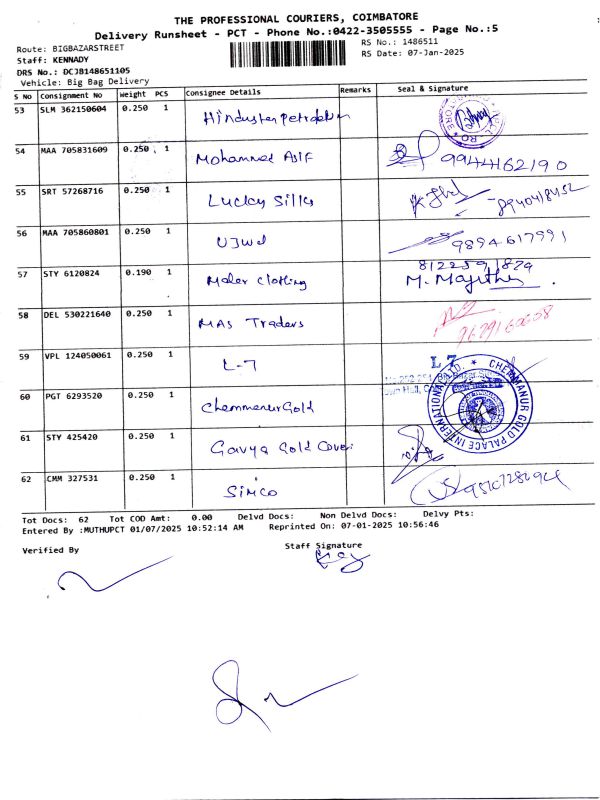 THE PROFESSIONAL COURIERS, COIMBATORE
Delivery Runsheet - PCT - Phone No.:0422-3505555 - Page No.:5
Route: BIGBAZARSTREET
RS No.: 1486511
Staff: KENNADY
RS Date: 07-Jan-2025
DRS No.: DCJB148651105
Vehicle: Big Bag Delivery
S No Consignment No Weight PCS Consignee Details Remarks Seal & Signature
53 SLM 362150604 0.250 1
54 MAA 705831609 0.250 1 Mohammed Asif 9944162190
55 SRT 57268716 0.250 1 Lucky Silks
56 MAA 705860801 0.250 1 UJwel 9894617991
57 STY 6120824 0.190 1 Moder Clothing
58 DEL 530221640 0.250 1 MAS Traders 9629160608
59 VPL 124050061 0.250 1 L-7 L 7
60 PGT 6293520 0.250 1 Chemmanur Gold CHEMMANUR GOLD PALACE INTERNATIONAL LTD.
61 STY 425420 0.250 1 Gavya Gold
62 CMM 327531 0.250 1 SIMCO
Tot Docs: 62 Tot COD Amt: 0.00 Delvd Docs: Non Delvd Docs: Delvy Pts:
Entered By :MUTHUPCT 01/07/2025 10:52:14 AM Reprinted On: 07-01-2025 10:56:46
Verified By
Staff Signature